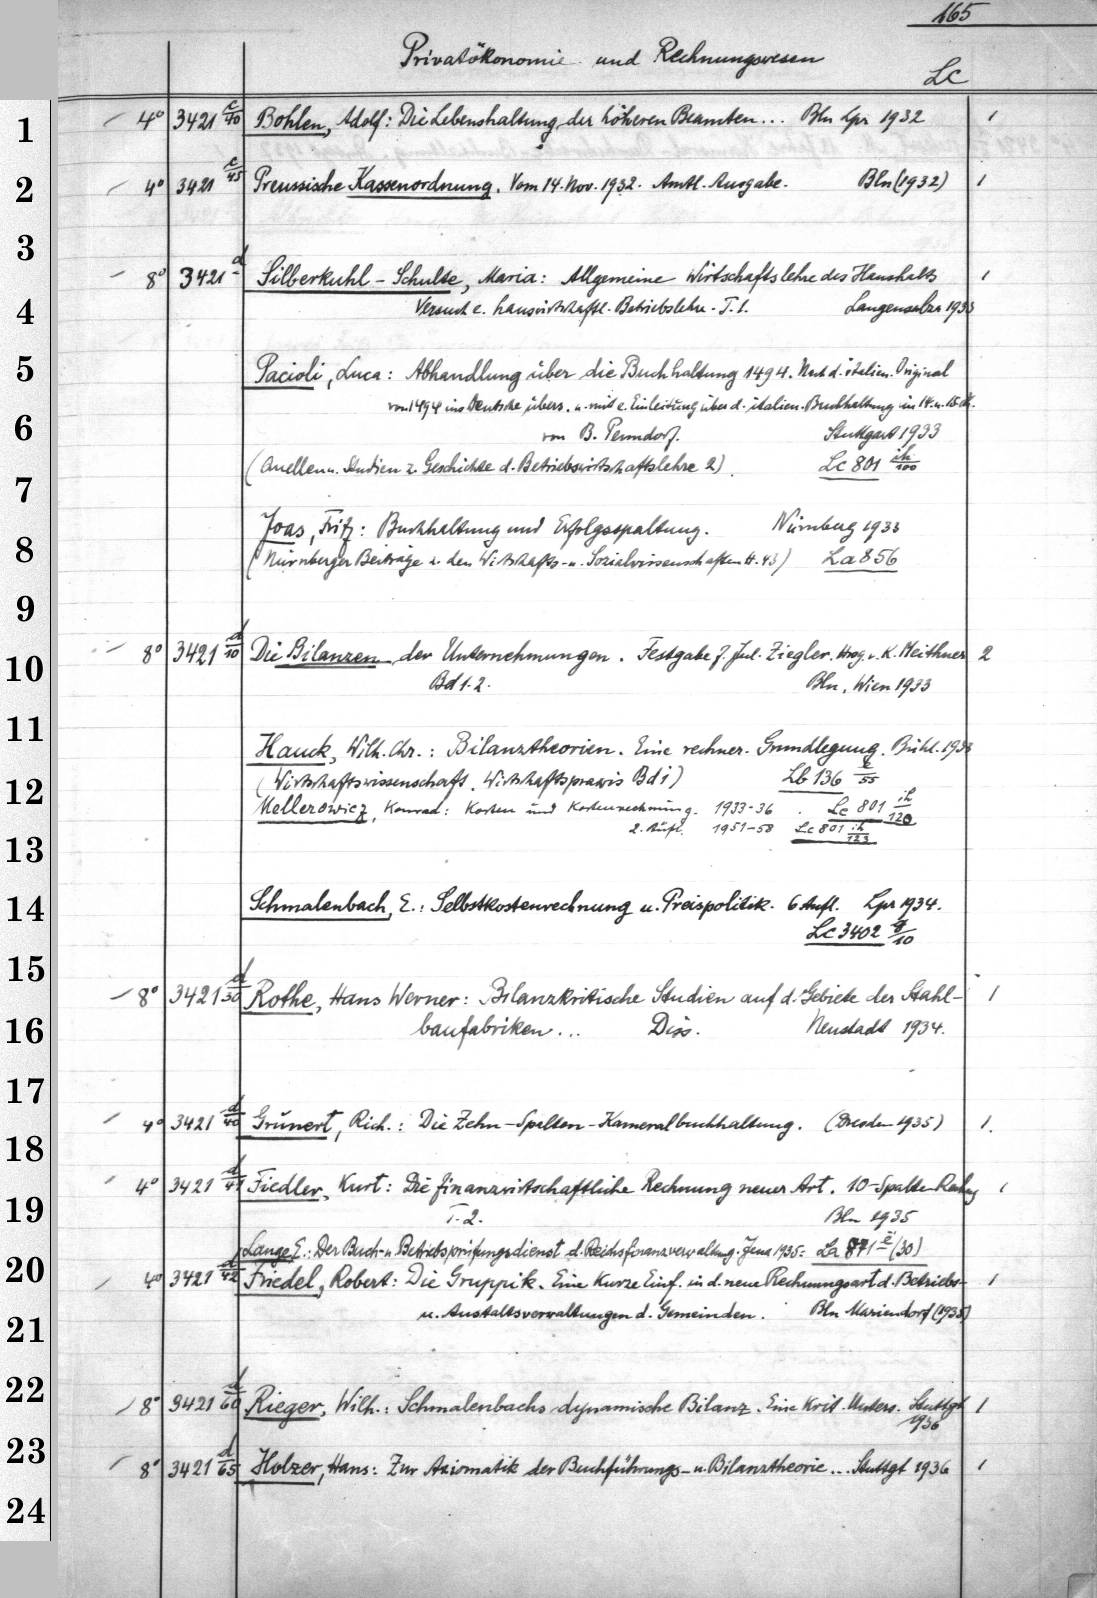 165
Privatökonomie und Rechnungswesen
Lc
1 4° 3421 c/40 Bohlen, Adolf: Die Lebenshaltung der höheren Beamten... Bln Lpz 1932 1
2 4° 3421 c/45 Preussische Kassenordnung. Vom 14. Nov. 1932. Amtl. Ausgabe. Bln (1932) 1
3
8° 3421 d/- Silberkuhl-Schulte, Maria: Allgemeine Wirtschaftslehre des Haushalts 1
4 Versuch e. hauswirtschaftl. Betriebslehre. T. 1. Langensalza 1933
5 Pacioli, Luca: Abhandlung über die Buchhaltung 1494. Nach d. italien. Original
von 1494 ins Deutsche übers. u. mit e. Einleitung über d. italien. Buchhaltung im 14. u. 15. Jh.
6 von B. Penndorf. Stuttgart 1933
(Quellen u. Studien z. Geschichte d. Betriebswirtschaftslehre 2). Lc 801 ih/100
7
Joas, Fritz: Buchhaltung und Erfolgsspaltung. Nürnberg 1933
8 (Nürnberger Beiträge z. den Wirtschafts- u. Sozialwissenschaften H. 43) La 856
9
10 8° 3421 d/10 Die Bilanzen der Unternehmungen. Festgabe f. Jul. Ziegler. Hrsg. v. K. Meithner 2
Bd 1.2. Bln, Wien 1933
11
Hauck, Wilh. Chr.: Bilanztheorien. Eine rechner. Grundlegung. Bühl. 1933
12 (Wirtschaftswissenschaft. Wirtschaftspraxis Bd 1) Lb 136 e/55
Mellerowicz, Konrad: Kosten und Kostenrechnung. 1933-36 Lc 801 ih/120
2. Aufl. 1951-58 Lc 801 ih/123
13
14 Schmalenbach, E.: Selbstkostenrechnung u. Preispolitik. 6 Aufl. Lpz 1934.
Lc 3402 g/10
15
8° 3421 d/30 Rothe, Hans Werner: Bilanzkritische Studien auf d. Gebiete der Stahl- 1
16 baufabriken... Diss. Neustadt 1934.
17
4° 3421 d/40 Grünert, Rich.: Die Zehn-Spalten-Kameralbuchhaltung. (Dresden 1935) 1.
18
4° 3421 d/41 Fiedler, Kurt: Die finanzwirtschaftliche Rechnung neuer Art. 10-Spalte-Rechng 1
19 T. 2. Bln 1935
Lange E.: Der Buch- u. Betriebsprüfungsdienst d. Reichsfinanzverwaltung. Jena 1935: La 871 e (30)
20 4° 3421 d/42 Friedel, Robert: Die Gruppik. Eine kurze Einf. in d. neue Rechnungsart d. Betriebs- 1
u. Anstaltsverwaltungen d. Gemeinden. Bln Mariendorf (1935)
21
22 8° 3421 d/60 Rieger, Wilh.: Schmalenbachs dynamische Bilanz. Eine krit. Unters. Stuttgt 1
1936
23 8° 3421 d/65 Holzer, Hans: Zur Axiomatik der Buchführungs- u. Bilanztheorie... Stuttgt 1936 1
24